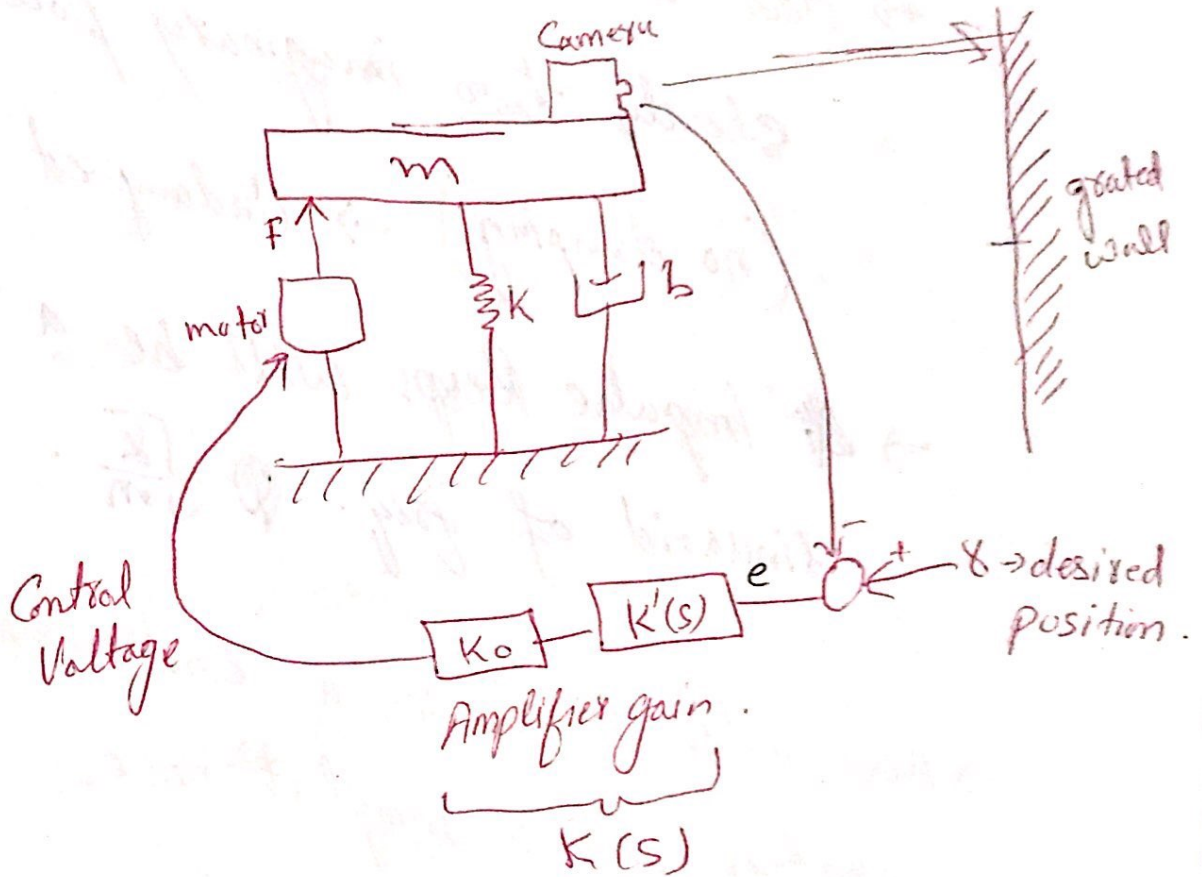 Camera
m
F
motor
K
b
grated
wall
Control
Voltage
K₀
K'(s)
e
-
+
r → desired
position.
Amplifier gain.
K(s)